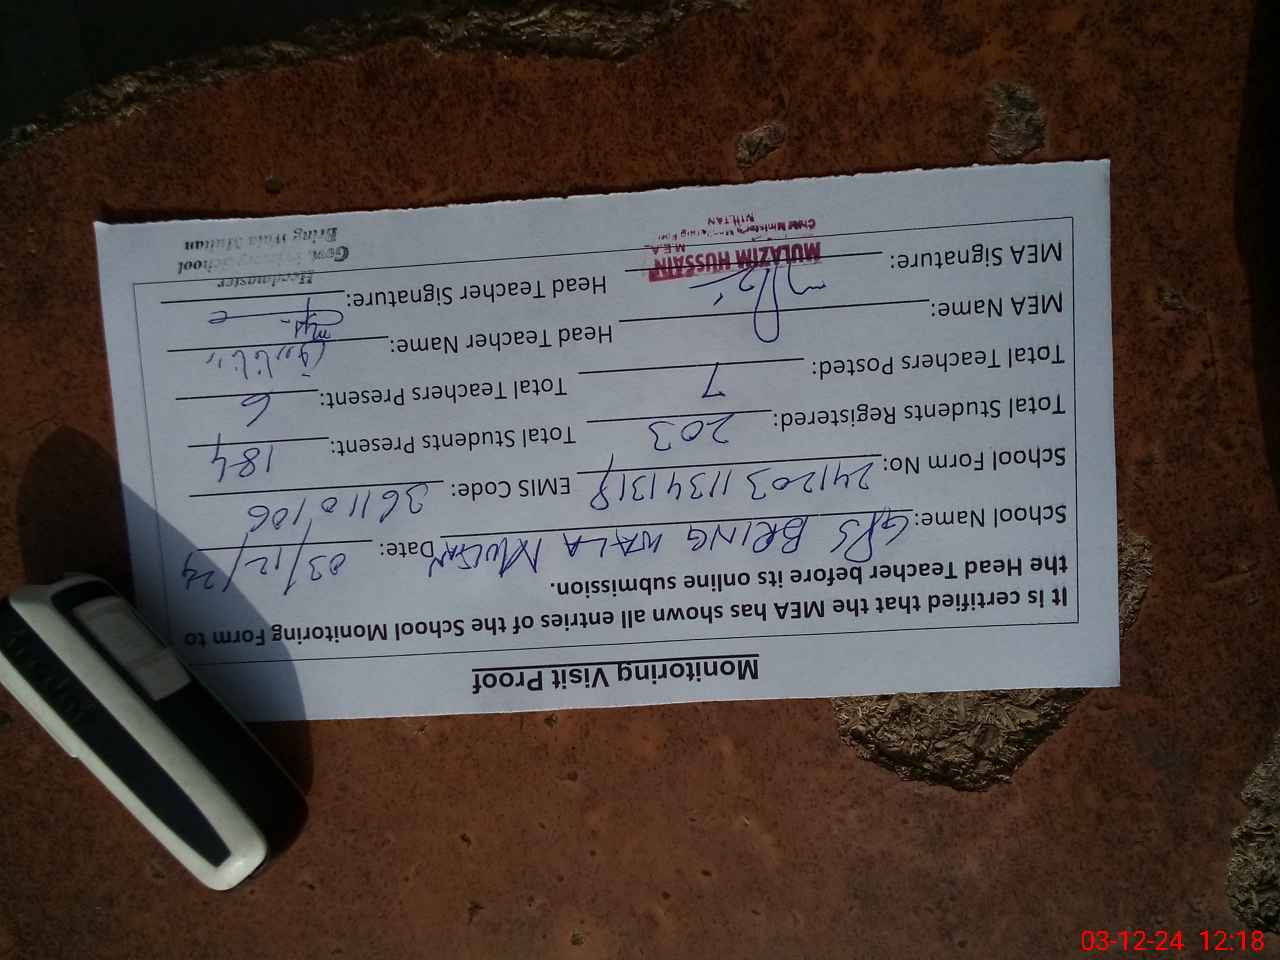 Monitoring Visit Proof
It is certified that the MEA has shown all entries of the School Monitoring Form to
the Head Teacher before its online submission.
School Name: GPS BRING WALA MULTAN Date: 03/12/24
School Form No: 2412031134131 EMIS Code: 36110106
Total Students Registered: 203 Total Students Present: 184
Total Teachers Posted: 7 Total Teachers Present: 6
MEA Name: Head Teacher Name:
MEA Signature: Head Teacher Signature:
MULAZIM HUSSAIN
M.E.A
Chief Minister's Monitoring Force
MULTAN
Headmaster
Govt. Primary School
Bring Wala Multan
03-12-24 12:18